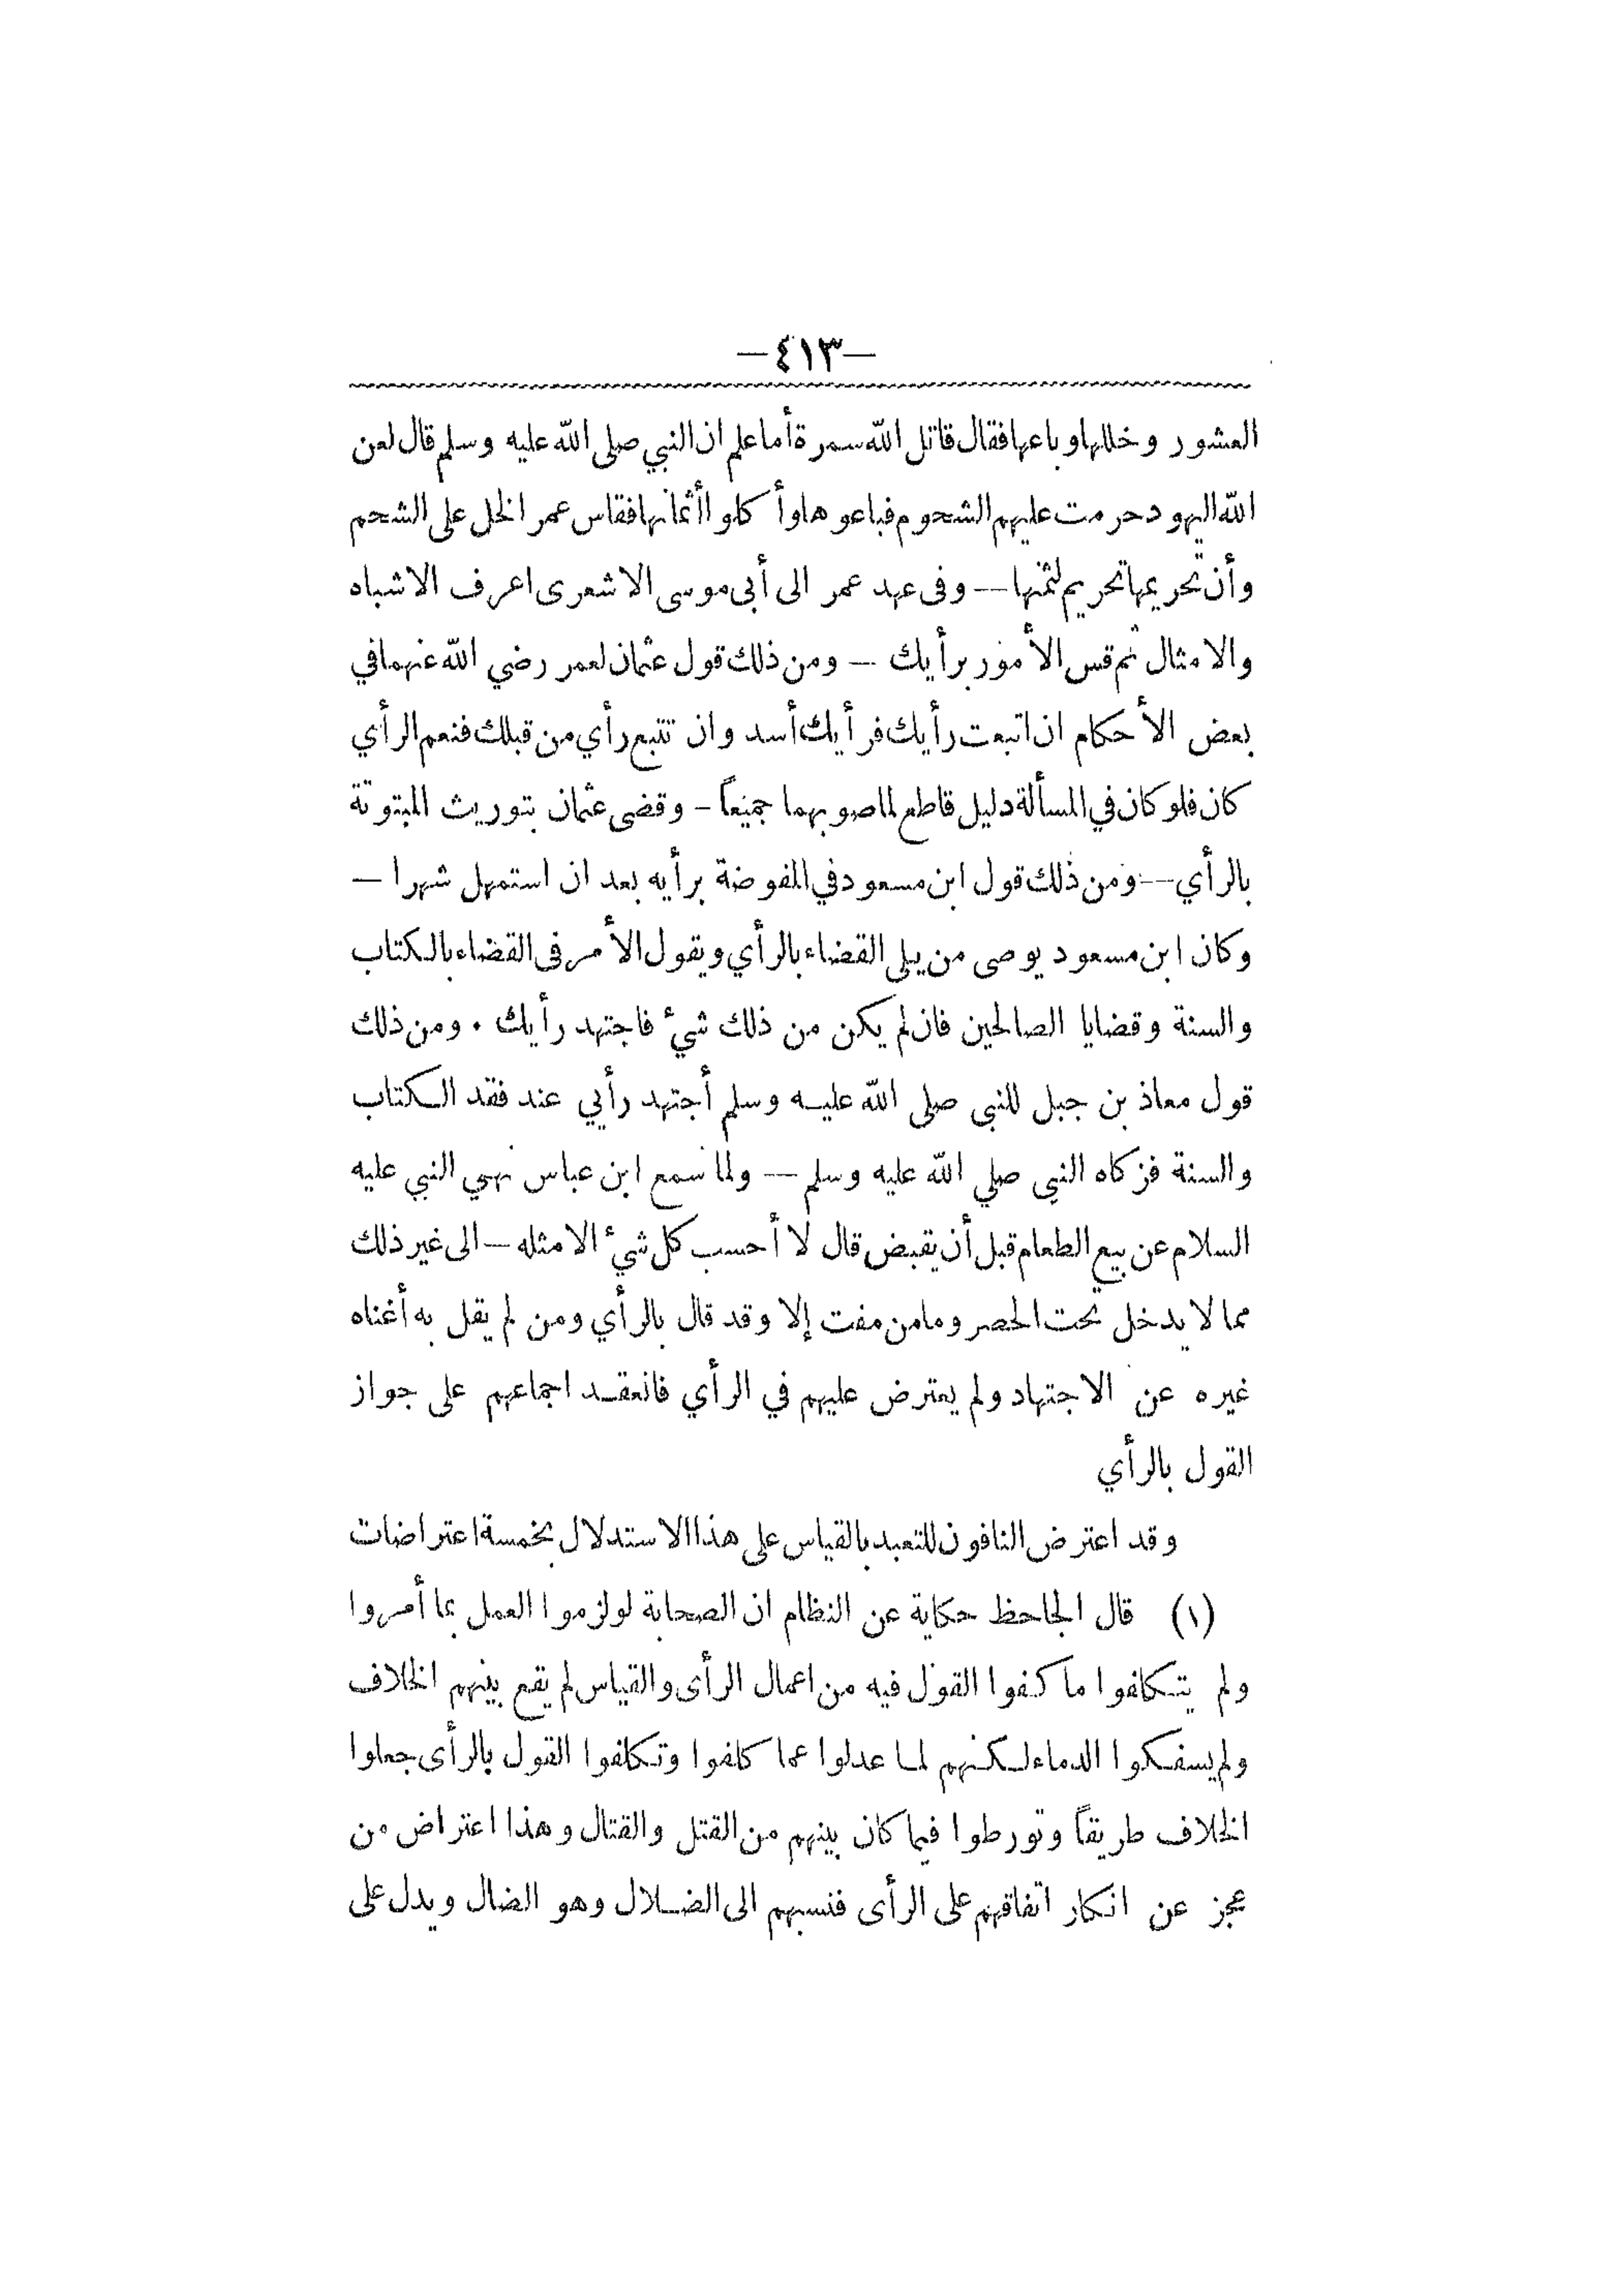 —٤١٣—
العشور وخللها وباعها فقال قاتل الله سمرة أما علم ان النبي صلى الله عليه وسلم قال لعن
الله اليهود حرمت عليهم الشحوم فباعوها وأكلوا أثمانها فقاس عمر الخل على الشحم
وأن تحريمها تحريم لثمنها — وفى عهد عمر الى أبى موسى الاشعرى اعرف الاشباه
والامثال ثم قس الأمور برأيك — ومن ذلك قول عثمان لعمر رضي الله عنهما في
بعض الأحكام ان اتبعت رأيك فرأيك أسد وان تتبع رأي من قبلك فنعم الرأي
كان فلو كان في المسألة دليل قاطع لما صوبهما جميعاً — وقضى عثمان بتوريث المبتوتة
بالرأي — ومن ذلك قول ابن مسعود في المفوضة برأيه بعد ان استمهل شهرا —
وكان ابن مسعود يوصى من يلى القضاء بالرأي ويقول الأمر فى القضاء بالكتاب
والسنة وقضايا الصالحين فان لم يكن من ذلك شيء فاجتهد رأيك . ومن ذلك
قول معاذ بن جبل للنبى صلى الله عليه وسلم أجتهد رأيي عند فقد الكتاب
والسنة فزكاه النبى صلي الله عليه وسلم — ولما سمع ابن عباس نهي النبي عليه
السلام عن بيع الطعام قبل أن يقبض قال لا أحسب كل شيء الا مثله — الى غير ذلك
مما لا يدخل تحت الحصر وما من مفت إلا وقد قال بالرأي ومن لم يقل به أغناه
غيره عن الاجتهاد ولم يعترض عليهم في الرأي فانعقد اجماعهم على جواز
القول بالرأي
وقد اعترض النافون للتعبد بالقياس على هذا الاستدلال بخمسة اعتراضات
(١) قال الجاحظ حكاية عن النظام ان الصحابة لو لزموا العمل بما أمروا
ولم يتكلفوا ما كفوا القول فيه من اعمال الرأى والقياس لم يقع بينهم الخلاف
ولم يسفكوا الدماء لكنهم لما عدلوا عما كلفوا وتكلفوا القول بالرأى جعلوا
الخلاف طريقاً وتورطوا فيما كان بينهم من القتل والقتال وهذا اعتراض من
عجز عن انكار اتفاقهم على الرأى فنسبهم الى الضلال وهو الضال ويدل على